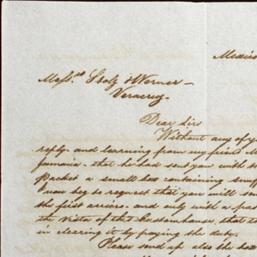 Mexico
Mess.rs Stolz & Werner
Veracruz
Dear Sirs
Without any of y
reply and learning from my friend M
Jamaica, that he had sent you with th
Packet a small box containing
now beg to request that you will
the first arriero, and only with a pas
the vista of the Customhouse, that
in clearing it by paying the duty.
Please send up also the